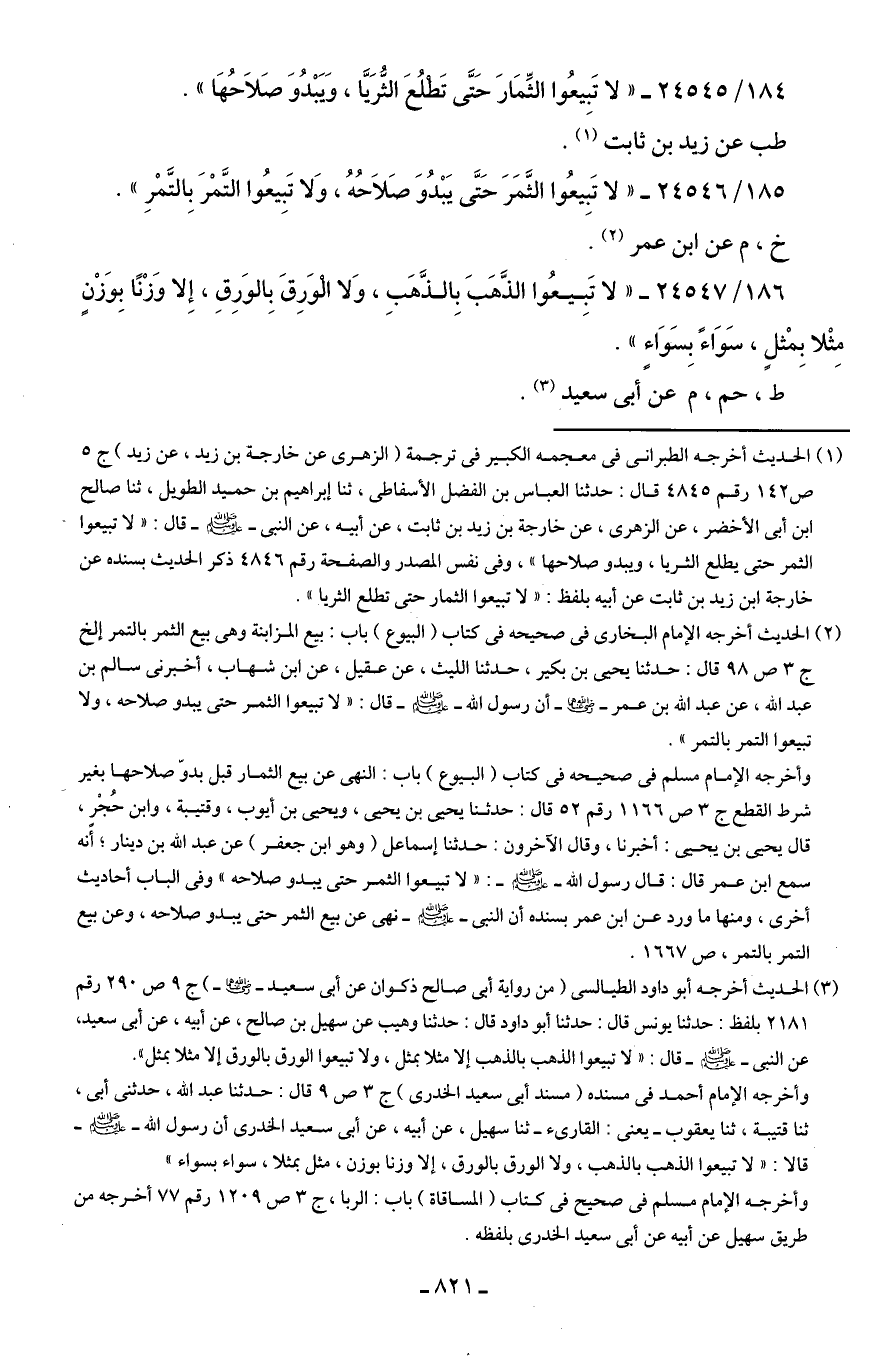 ١٨٤/ ٢٤٥٤٥ ـ « لا تَبِيعُوا الثِّمَارَ حَتَّى تَطْلُعَ الثُّرَيَّا ، وَيَبْدُوَ صَلاَحُهَا » .
طب عن زيد بن ثابت (١) .
١٨٥/ ٢٤٥٤٦ ـ « لا تَبِيعُوا الثَّمَرَ حَتَّى يَبْدُوَ صَلاَحُهُ ، وَلا تَبِيعُوا التَّمْرَ بِالتَّمْرِ » .
خ ، م عن ابن عمر (٢) .
١٨٦/ ٢٤٥٤٧ ـ « لا تَبِيعُوا الذَّهَبَ بِالذَّهَبِ ، وَلا الْوَرِقَ بِالوَرِقِ ، إِلا وَزْنًا بِوَزْنٍ
مِثْلا بِمْثلٍ ، سَوَاءً بِسَوَاءٍ » .
ط ، حم ، م عن أبى سعيد (٣) .
(١) الحديث أخرجه الطبرانى فى معجمه الكبير فى ترجمة ( الزهرى عن خارجة بن زيد ، عن زيد ) ج ٥
ص١٤٢ رقم ٤٨٤٥ قال : حدثنا العباس بن الفضل الأسفاطى ، ثنا إبراهيم بن حميد الطويل ، ثنا صالح
ابن أبى الأخضر ، عن الزهرى ، عن خارجة بن زيد بن ثابت ، عن أبيه ، عن النبى ـ ﷺ ـ قال : « لا تبيعوا
الثمر حتى يطلع الثريا ، ويبدو صلاحها » ، وفى نفس المصدر والصفحة رقم ٤٨٤٦ ذكر الحديث بسنده عن
خارجة ابن زيد بن ثابت عن أبيه بلفظ : « لا تبيعوا الثمار حتى تطلع الثريا » .
(٢) الحديث أخرجه الإمام البخارى فى صحيحه فى كتاب ( البيوع ) باب : بيع المزابنة وهى بيع الثمر بالتمر إلخ
ج ٣ ص ٩٨ قال : حدثنا يحيى بن بكير ، حدثنا الليث ، عن عقيل ، عن ابن شهاب ، أخبرنى سالم بن
عبد الله ، عن عبد الله بن عمر ـ رضي الله عنهما ـ أن رسول الله ـ ﷺ ـ قال : « لا تبيعوا الثمر حتى يبدو صلاحه ، ولا
تبيعوا التمر بالتمر » .
وأخرجه الإمام مسلم فى صحيحه فى كتاب ( البيوع ) باب : النهى عن بيع الثمار قبل بدوّ صلاحها بغير
شرط القطع ج ٣ ص ١١٦٦ رقم ٥٢ قال : حدثنا يحيى بن يحيى ، ويحيى بن أيوب ، وقتيبة ، وابن حُجْرٍ ،
قال يحيى بن يحيى : أخبرنا ، وقال الآخرون : حدثنا إسماعل ( وهو ابن جعفر ) عن عبد الله بن دينار ؛ أنه
سمع ابن عمر قال : قال رسول الله ـ ﷺ ـ : « لا تبيعوا الثمر حتى يبدو صلاحه » وفى الباب أحاديث
أخرى ، ومنها ما ورد عن ابن عمر بسنده أن النبى ـ ﷺ ـ نهى عن بيع الثمر حتى يبدو صلاحه ، وعن بيع
التمر بالتمر ، ص ١٦٦٧ .
(٣) الحديث أخرجه أبو داود الطيالسى ( من رواية أبى صالح ذكوان عن أبى سعيد ـ رضي الله عنه ـ ) ج ٩ ص ٢٩٠ رقم
٢١٨١ بلفظ : حدثنا يونس قال : حدثنا أبو داود قال : حدثنا وهيب عن سهيل بن صالح ، عن أبيه ، عن أبى سعيد،
عن النبى ـ ﷺ ـ قال : « لا تبيعوا الذهب بالذهب إلا مثلا بمثل ، ولا تبيعوا الورق بالورق إلا مثلا بمثل».
وأخرجه الإمام أحمد فى مسنده ( مسند أبى سعيد الخدرى ) ج ٣ ص ٩ قال : حدثنا عبد الله ، حدثنى أبى ،
ثنا قتيبة ، ثنا يعقوب ـ يعنى : القارىء ـ ثنا سهيل ، عن أبيه ، عن أبى سعيد الخدرى أن رسول الله ـ ﷺ ـ
قالا : « لا تبيعوا الذهب بالذهب ، ولا الورق بالورق ، إلا وزنا بوزن ، مثل بمثلا ، سواء بسواء »
وأخرجه الإمام مسلم فى صحيح فى كتاب ( المساقاة ) باب : الربا ، ج ٣ ص ١٢٠٩ رقم ٧٧ أخرجه من
طريق سهيل عن أبيه عن أبى سعيد الخدرى بلفظه .
ـ ٨٢١ ـ